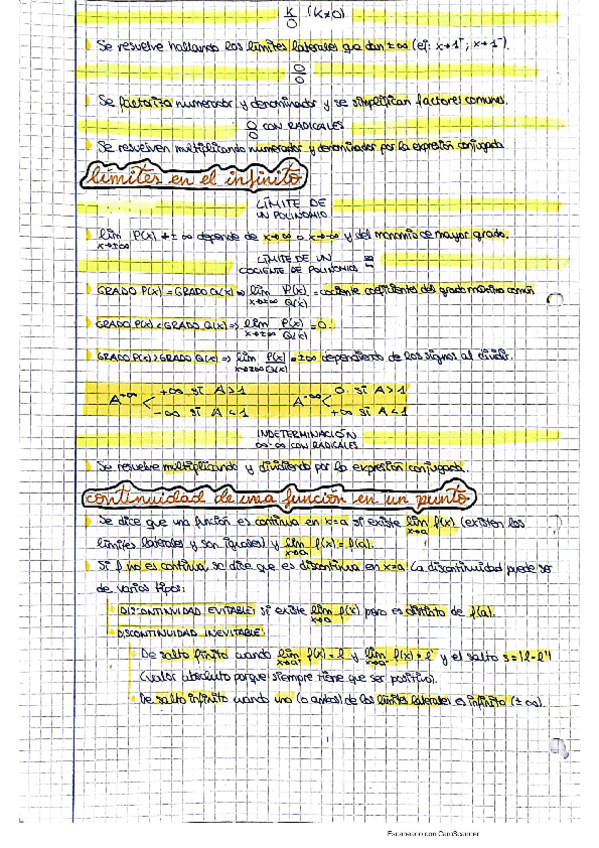 K/0 (K≠0)
Se resuelve hallando los límites laterales que dan ±∞ (ej: x→1⁻; x→1⁻).
0/0
Se factoriza numerador y denominador y se simplifican factores comunes.
0/0 CON RADICALES
Se resuelven multiplicando numerador y denominador por la expresión conjugada
límites en el infinito
LÍMITE DE
UN POLINOMIO
lim x→±∞ P(x) = ±∞ depende de x→∞ o x→-∞ y del monomio de mayor grado.
LÍMITE DE UN
COCIENTE DE POLINOMIOS ∞/∞
GRADO P(x) = GRADO Q(x) ⇒ lim x→±∞ P(x)/Q(x) = cociente coeficientes del grado máximo común
GRADO P(x) < GRADO Q(x) ⇒ lim x→±∞ P(x)/Q(x) = 0.
GRADO P(x) > GRADO Q(x) ⇒ lim x→±∞ P(x)/Q(x) = ±∞ dependiendo de los signos al dividir.
A^+∞ < +∞ si A>1 A^-∞ < 0 si A>1
-∞ si A<1 +∞ si A<1
INDETERMINACIÓN
∞-∞ CON RADICALES
Se resuelve multiplicando y dividiendo por la expresión conjugada.
continuidad de una función en un punto
Se dice que una función es continua en x=a si existe lim x→a f(x) (existen los
límites laterales y son iguales) y lim x→a f(x) = f(a).
Si f no es continua, se dice que es discontinua en x=a. La discontinuidad puede ser
de varios tipos:
DISCONTINUIDAD EVITABLE: si existe lim x→a f(x) pero es distinto de f(a).
DISCONTINUIDAD INEVITABLE:
De salto finito cuando lim x→a⁻ f(x) = l y lim x→a⁺ f(x) = l' y el salto s=|l-l'|
(valor absoluto porque siempre tiene que ser positivo).
De salto infinito cuando uno (o ambos) de los límites laterales es infinito (±∞).
Escaneado con CamScanner